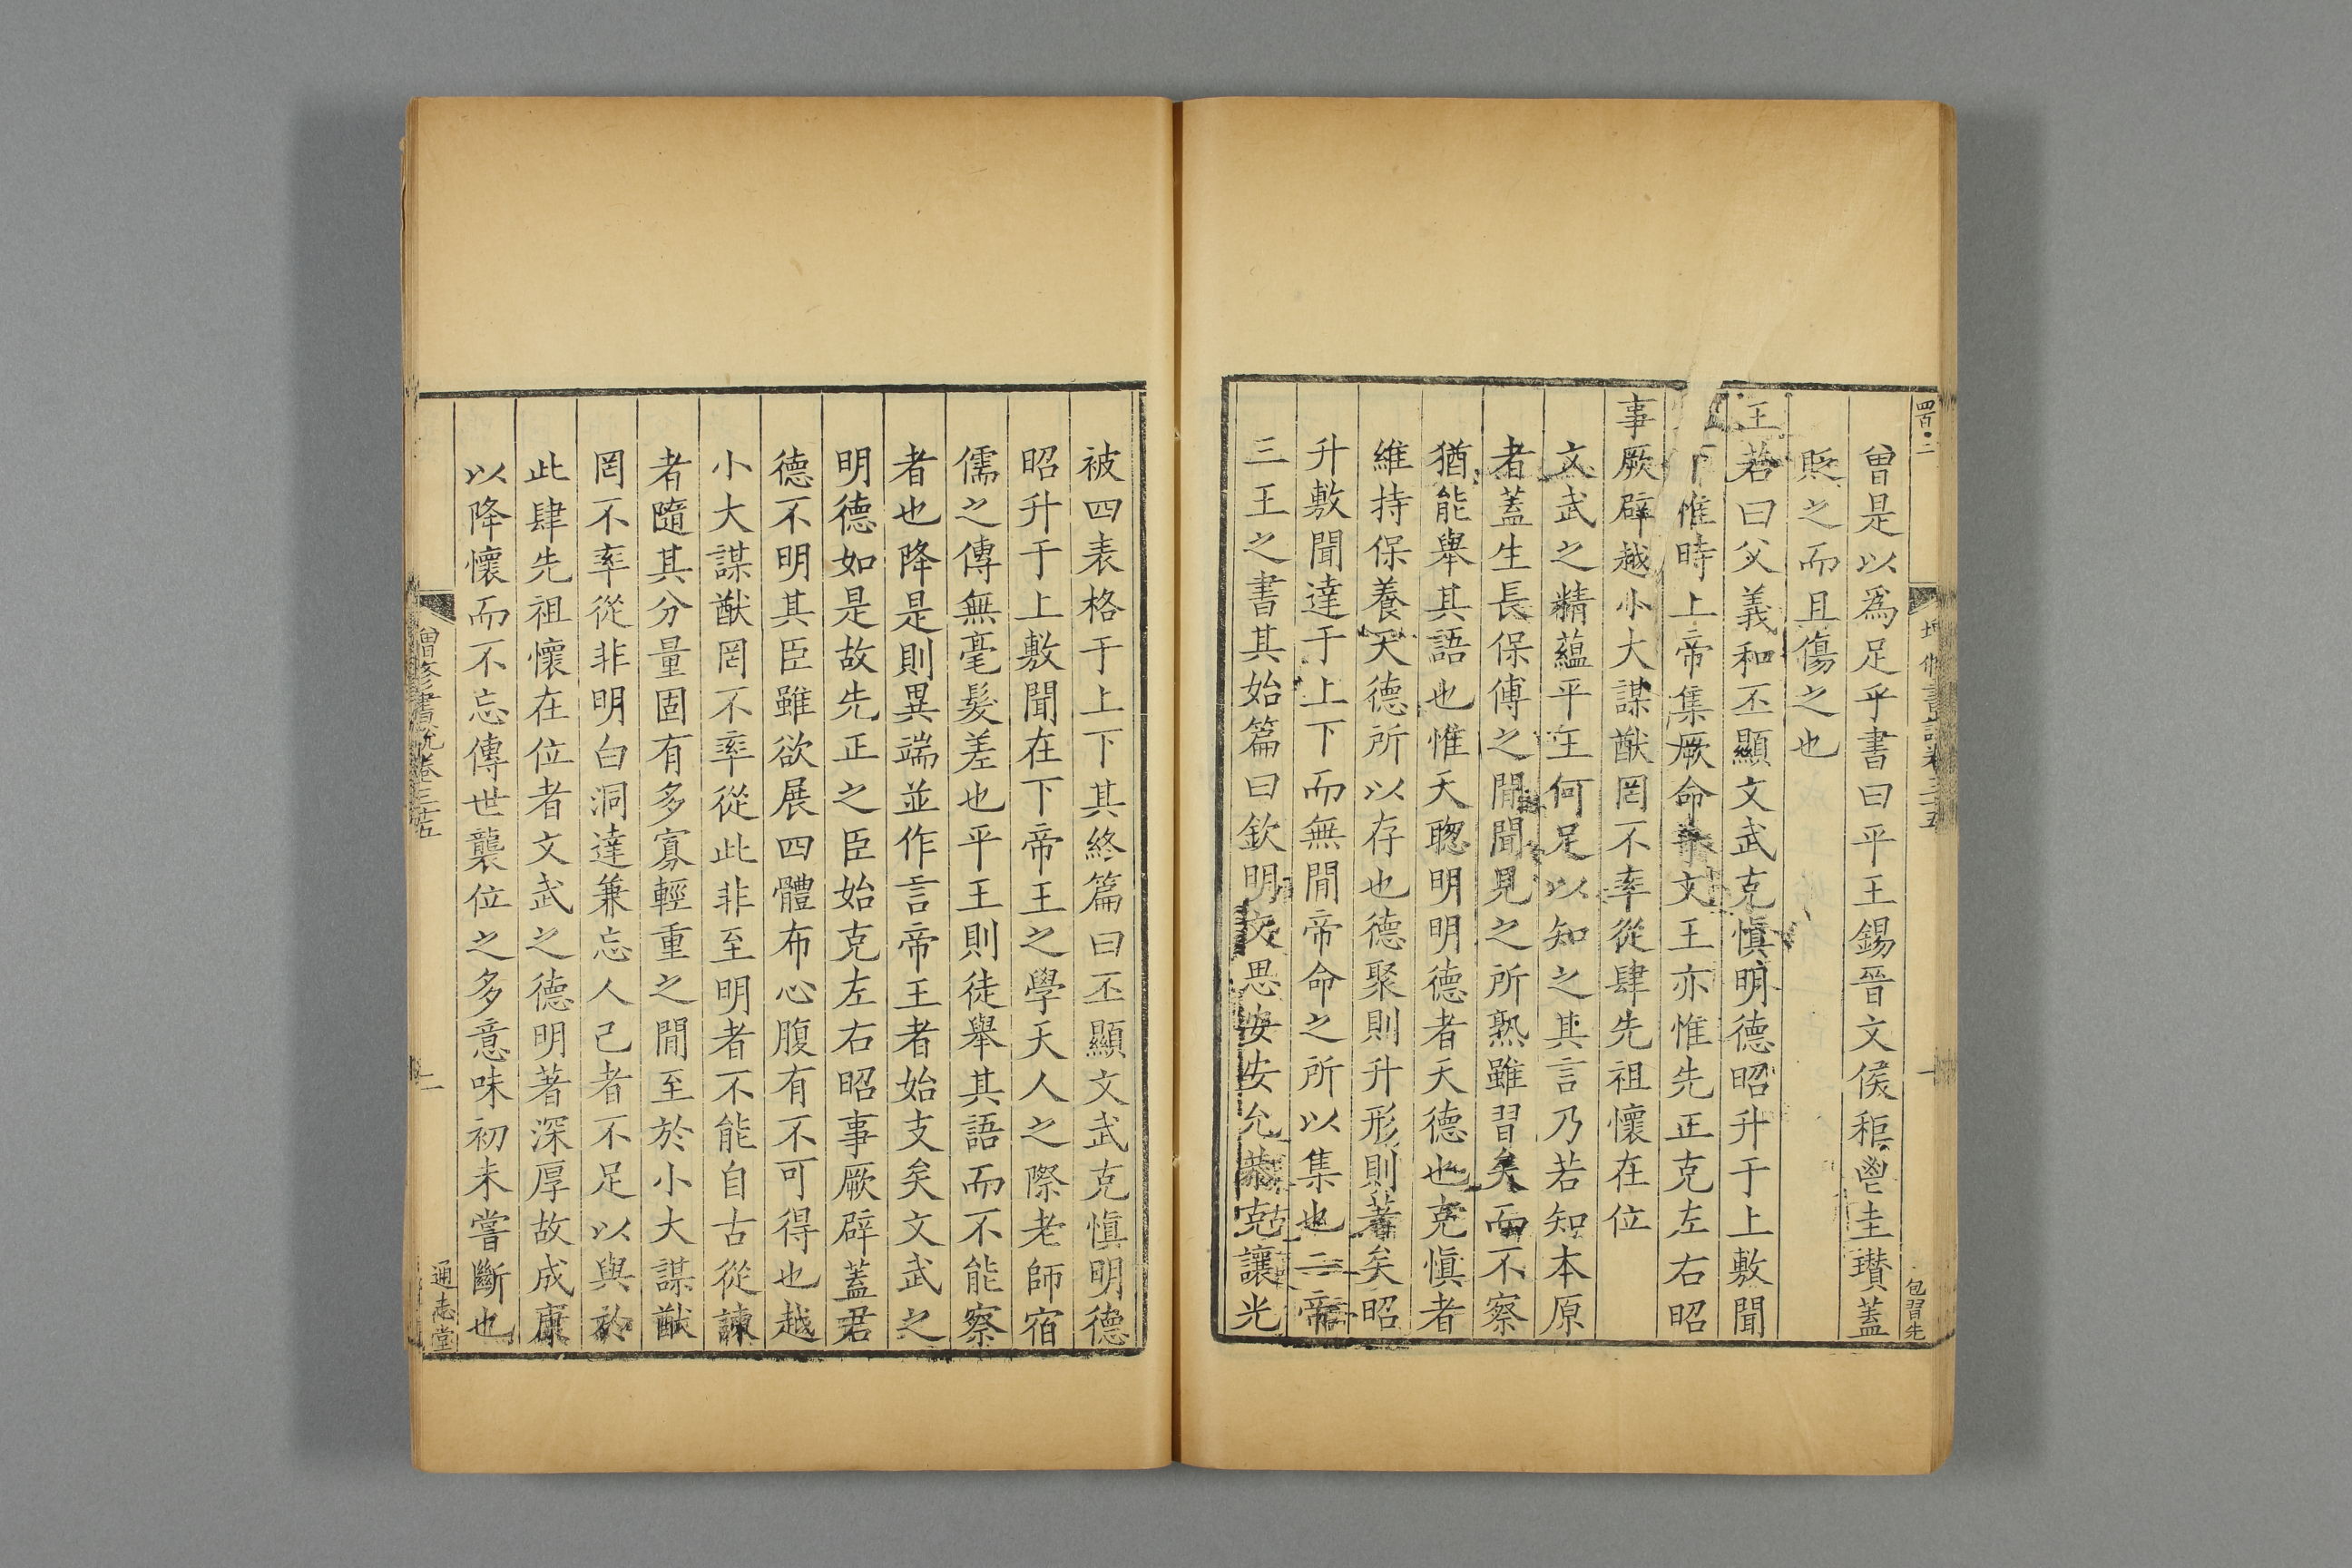 曾是以爲足乎書曰平王錫晉文侯秬鬯圭瓚蓋
貶之而且傷之也
王若曰父義和丕顯文武克愼明德昭升于上敷聞
下惟時上帝集厥命文王亦惟先正克左右昭
事厥辟越小大謀猷罔不率從肆先祖懷在位
文武之精蘊平王何足以知之其言乃若知本原
者蓋生長保傅之閒聞見之所熟雖習矣而不察
猶能舉其語也惟天聰明明德者天德也克愼者
維持保養天德所以存也德聚則升形則著矣昭
升敷聞達于上下而無閒帝命之所以集也二帝
三王之書其始篇曰欽明文思安安允恭克讓光
四百二
包習先
被四表格于上下其終篇曰丕顯文武克愼明德
昭升于上敷聞在下帝王之學天人之際老師宿
儒之傳無毫髮差也平王則徒舉其語而不能察
者也降是則異端並作言帝王者始支矣文武之
明德如是故先正之臣始克左右昭事厥辟蓋君
德不明其臣雖欲展四體布心腹有不可得也越
小大謀猷罔不率從此非至明者不能自古從諫
者隨其分量固有多寡輕重之閒至於小大謀猷
罔不率從非明白洞達兼忘人己者不足以與於
此肆先祖懷在位者文武之德明著深厚故成康
以降懷而不忘傳世襲位之多意味初未嘗斷也
增修書說卷三十五
通志堂